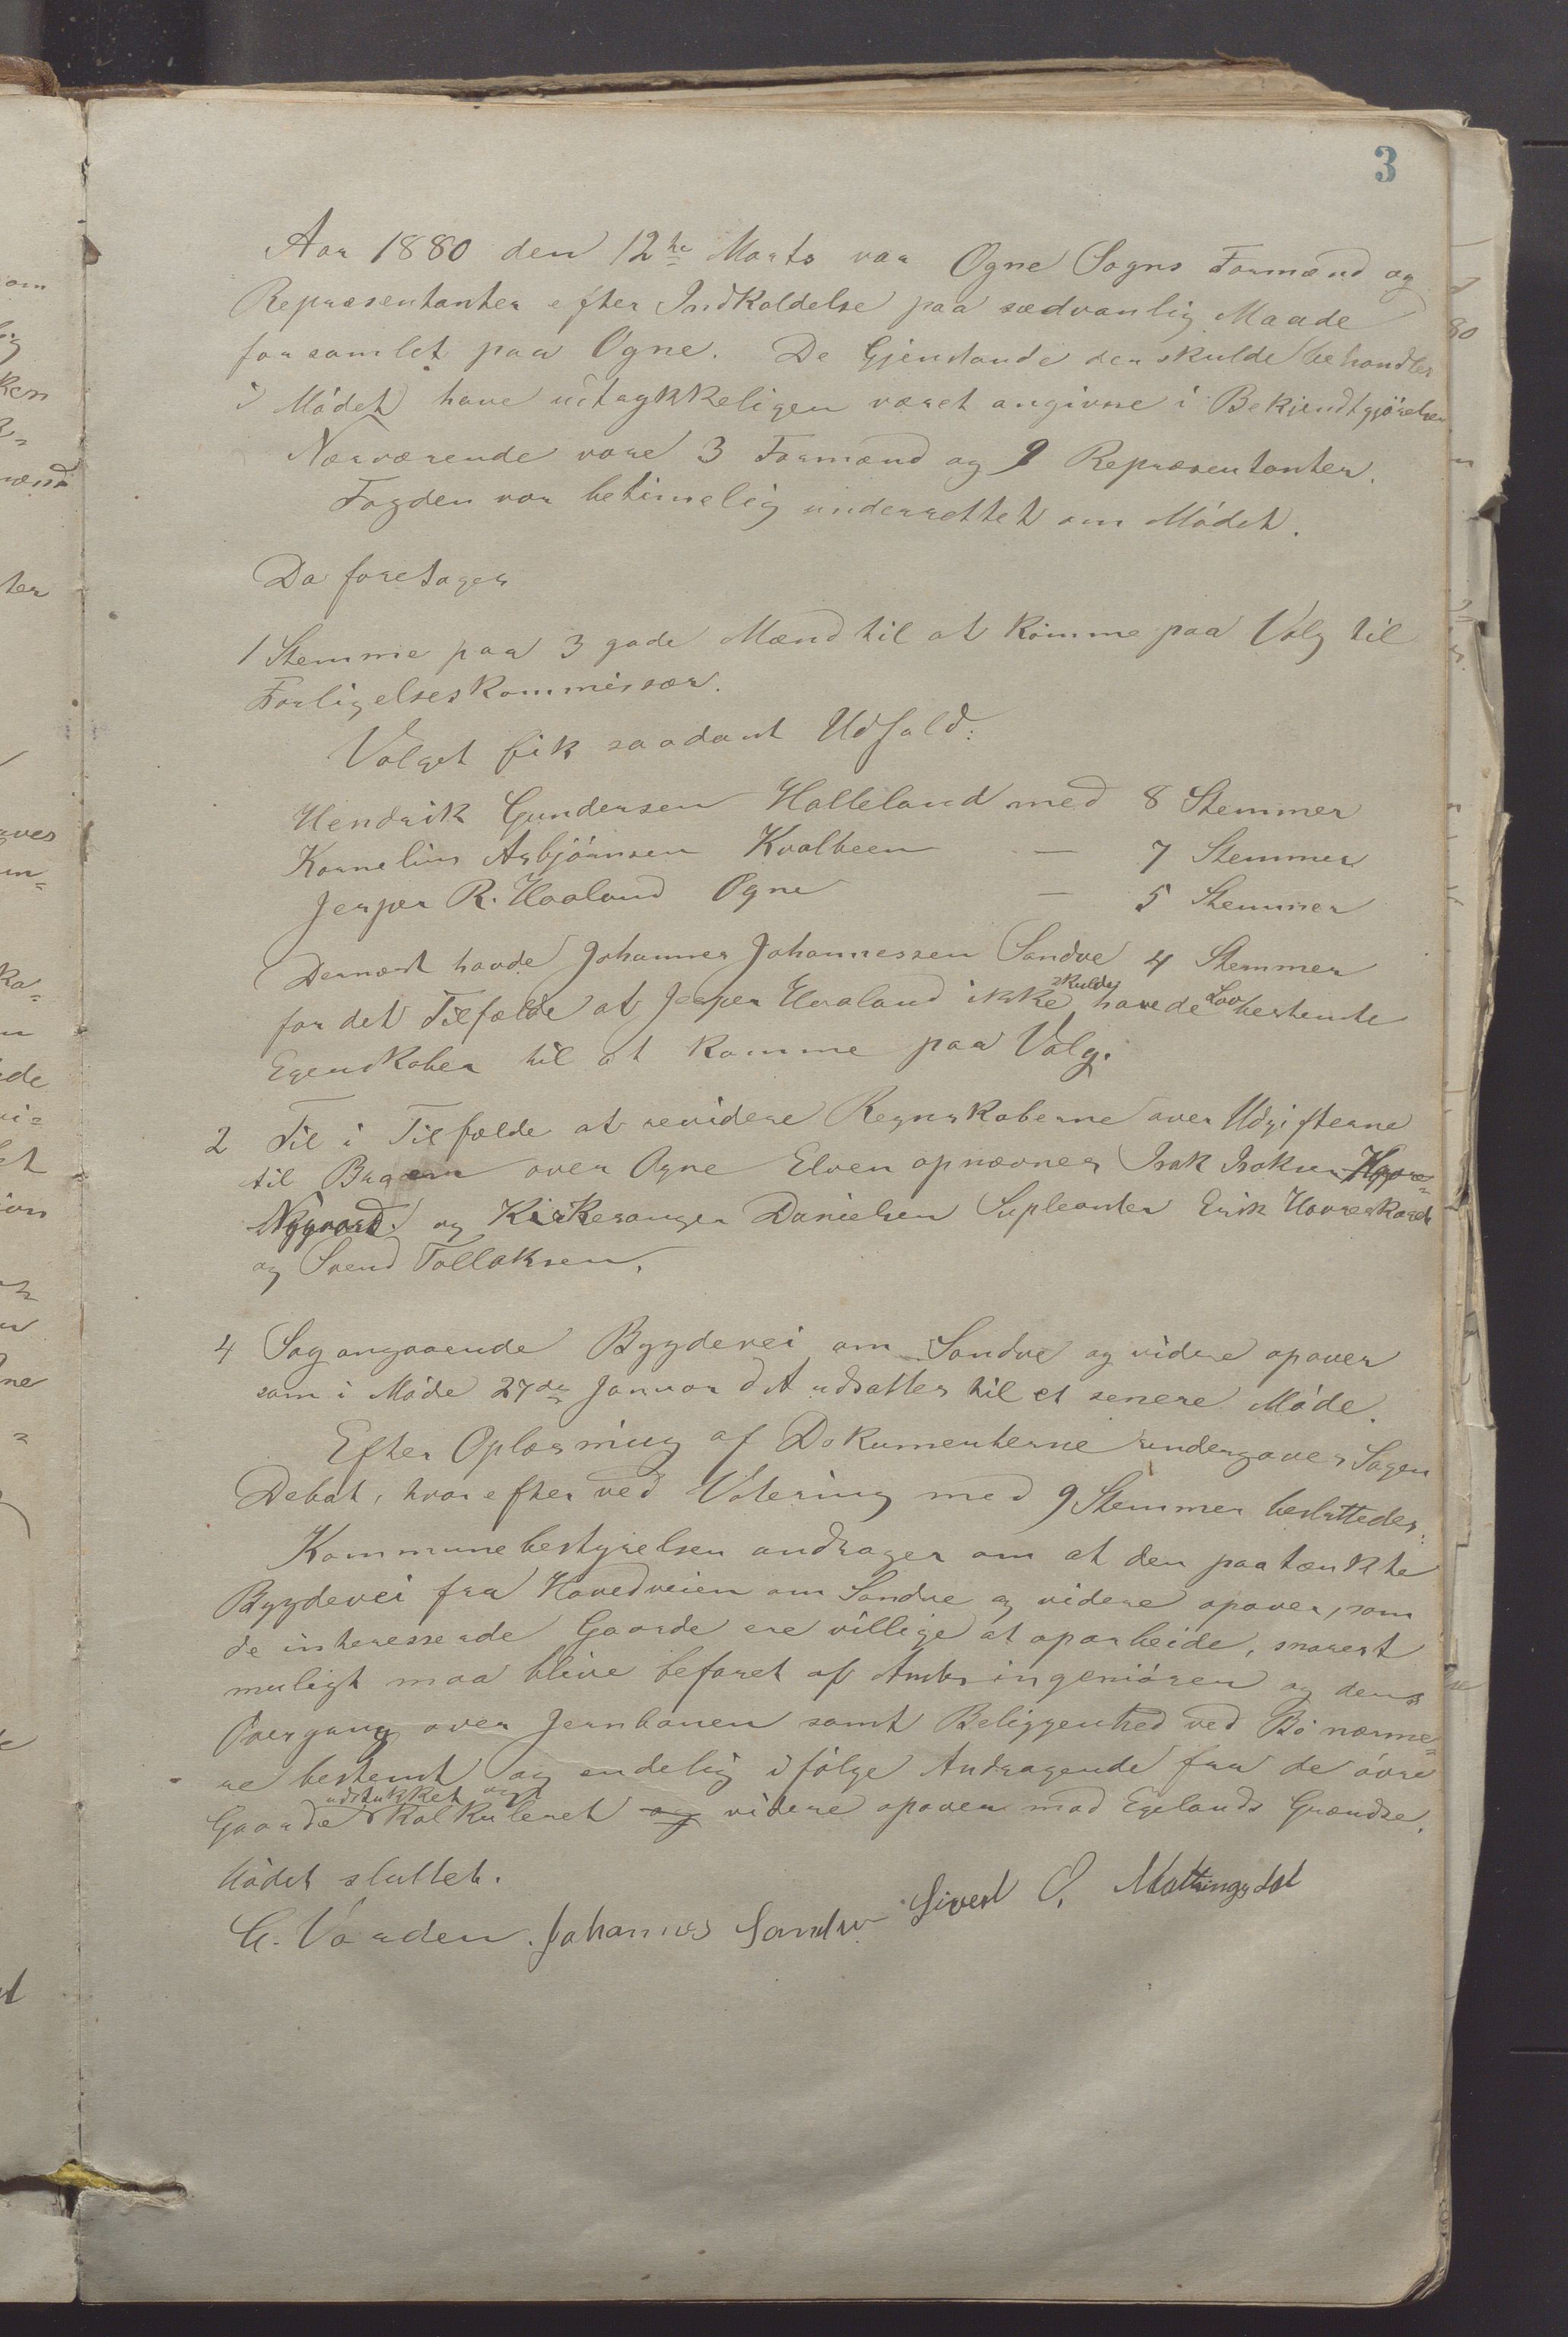 3
Aar 1880 den 12te Marts var Ogne Sogns Formænd og
Repræsentanter efter Indkaldelse paa sædvanlig Maade
forsamlet paa Ogne. De Gjenstande der skulde behandles
i Mödet have udtrykkeligen været angivne i Bekjendtgjörelsen
Nærværende vare 3 Formænd og 9 Repræsentanter.
Fogden var betimelig underrettet om Mödet.
Da foretoges
1 Stemme paa 3 gode Mænd til at komme paa Valg til
Forligelseskommissær.
Valget fik saadant Udfald:
Hendrik Gundersen Halleland med 8 Stemmer
Kornelius Asbjörnsen Kvalbeen — 7 Stemmer
Jesper R. Haaland Ogne — 5 Stemmer
Dernæst havde Johannes Johannessen Sandve 4 Stemmer
for det Tilfælde at Jesper Haaland ikke skulde have de Lovbestemte
Egenskaber til at komme paa Valg.
2 Til i Tilfælde at revidere Regnskaberne over Udgifterne
til Bygen over Ogne Elven opnævnes Isak Isaksen
Nygaard og Kirkesanger Danielsen Supleanter Erik Hovreskaret
og Svend Tollaksen.
4 Sag angaaende Bygdevei om Sandve og videre opover
som i Möde 27de Januar d A udsattes til et senere Möde.
Efter Oplæsning af Dokumenterne undergaves Sagen
Debat, hvorefter ved Votering med 9 Stemmer besluttedes:
Kommunebestyrelsen andrager om at den paatænkte
Bygdevei fra Hovedveien om Sandve og videre opover, som
de interesserede Gaarde ere villige at oparbeide, snarest
muligt maa blive befaret af Amtsingeniören og dens
Overgang over Jernbanen samt Beliggenhed ved Bö nærme=
re bestemt og endelig ifölge Andragende fra de övre
Gaarde udstukket og kalkuleret videre opover mod Egelands Grændse.
Mödet sluttet.
G. Vaaden. Johannes Sandve Sivert O. Matningsdal